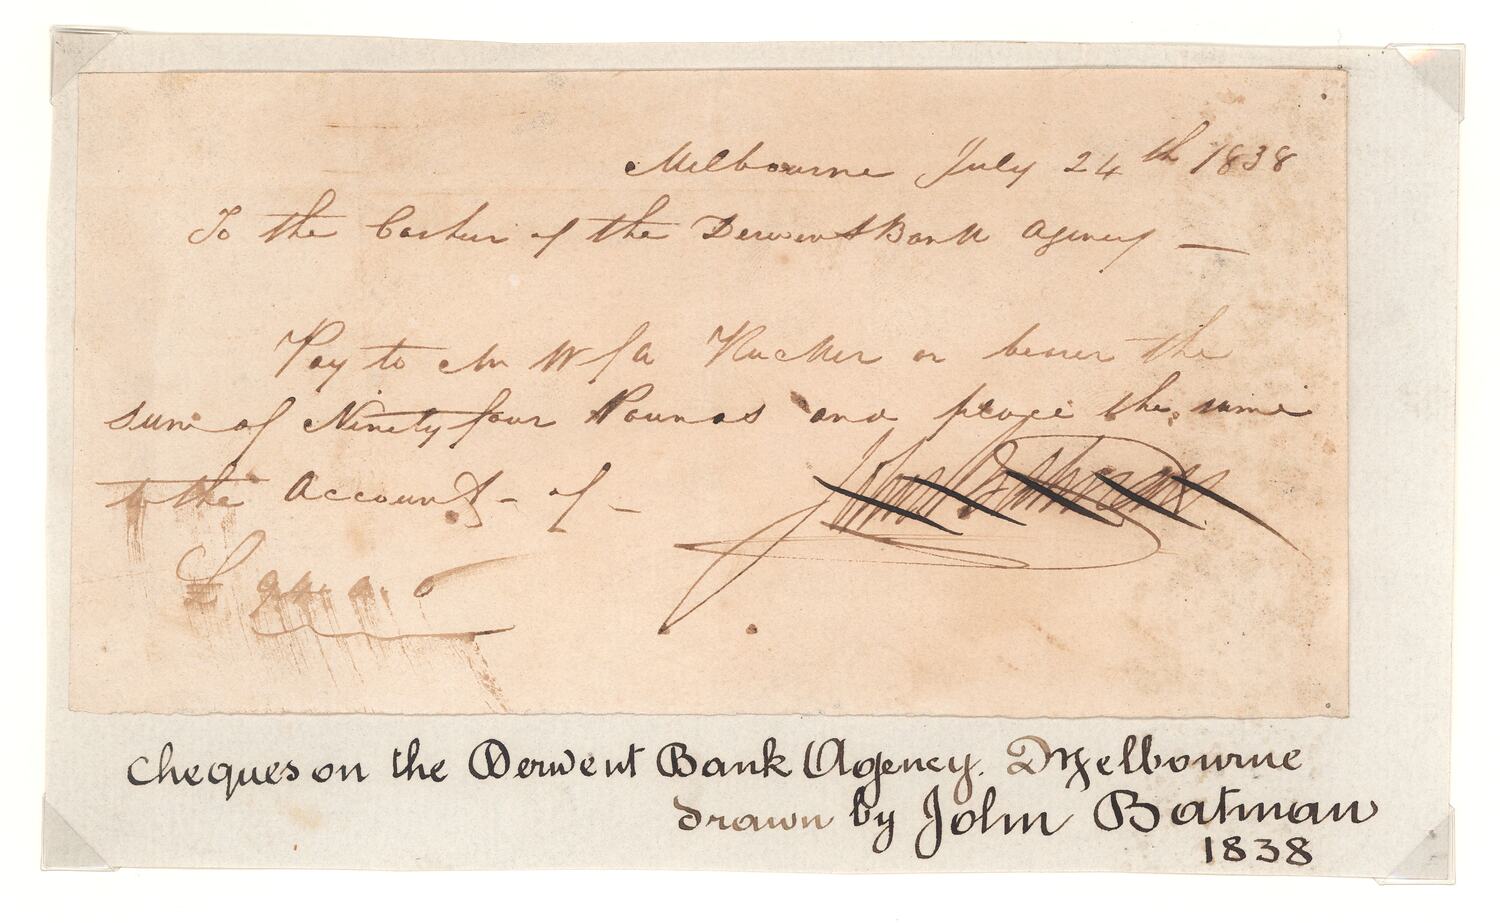 Melbourne July 24th 1838
To the Cashier of the Derwent Bank Agency —
Pay to Mr W F A Rucker or bearer the
sum of Ninety four Pounds and place the same
to the Account - of -
John Batman
£ 94. 0. 0
Cheques on the Derwent Bank Agency. Melbourne
drawn by John Batman
1838